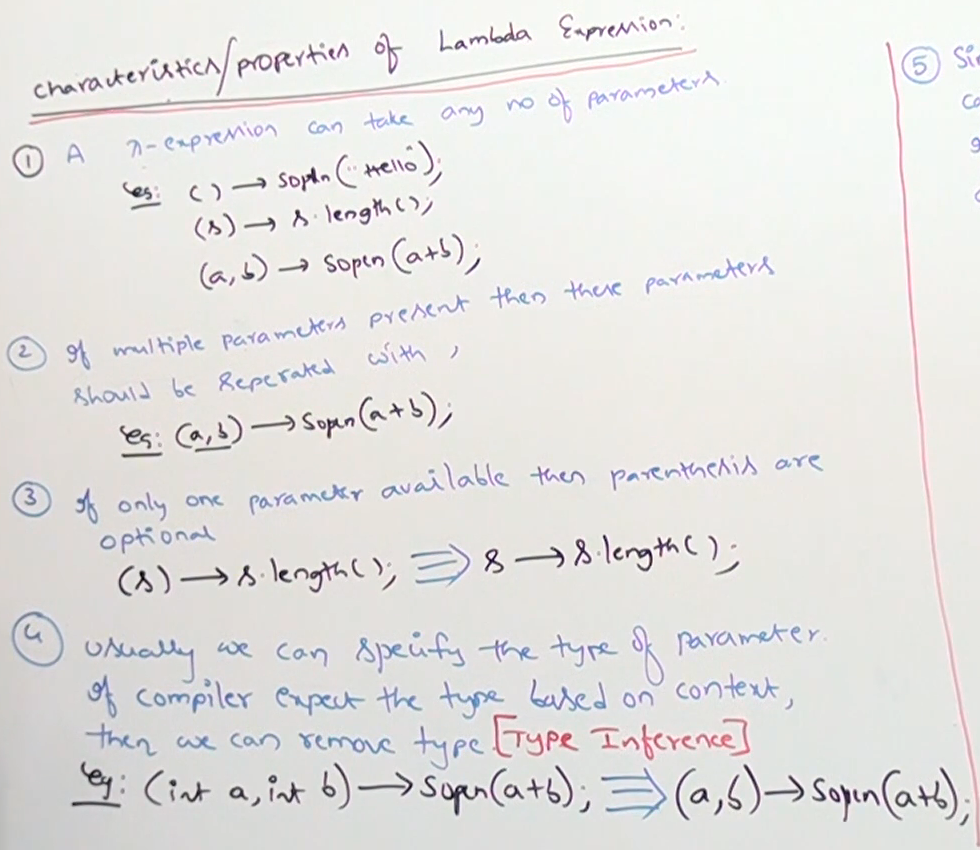 characteristics/properties of Lambda Expression:
① A λ-expression can take any no of parameters.
eg: () → sopln("Hello");
(s) → s.length();
(a,b) → sopln(a+b);
② If multiple parameters present then these parameters
should be seperated with ,
eg: (a,b) → sopln(a+b);
③ If only one parameter available then parenthesis are
optional
(s) → s.length(); ⇛ s → s.length();
④ usually we can specify the type of parameter.
If compiler expect the type based on context,
then we can remove type. [Type Inference]
eg: (int a, int b) → sopln(a+b); ⇛ (a,b) → sopln(a+b);
⑤